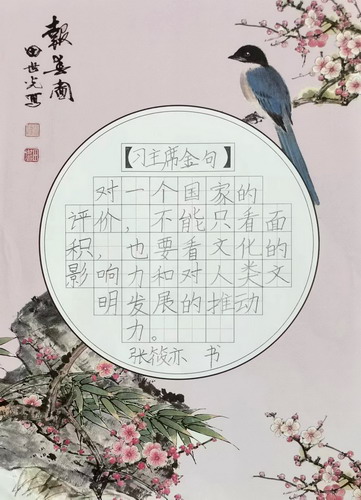 報春圖
田世光寫
【习主席金句】
对一个国家的
评价，不能只看面
积，也要看文化的
影响力和对人类文
明发展的推动
力。
张筱亦 书